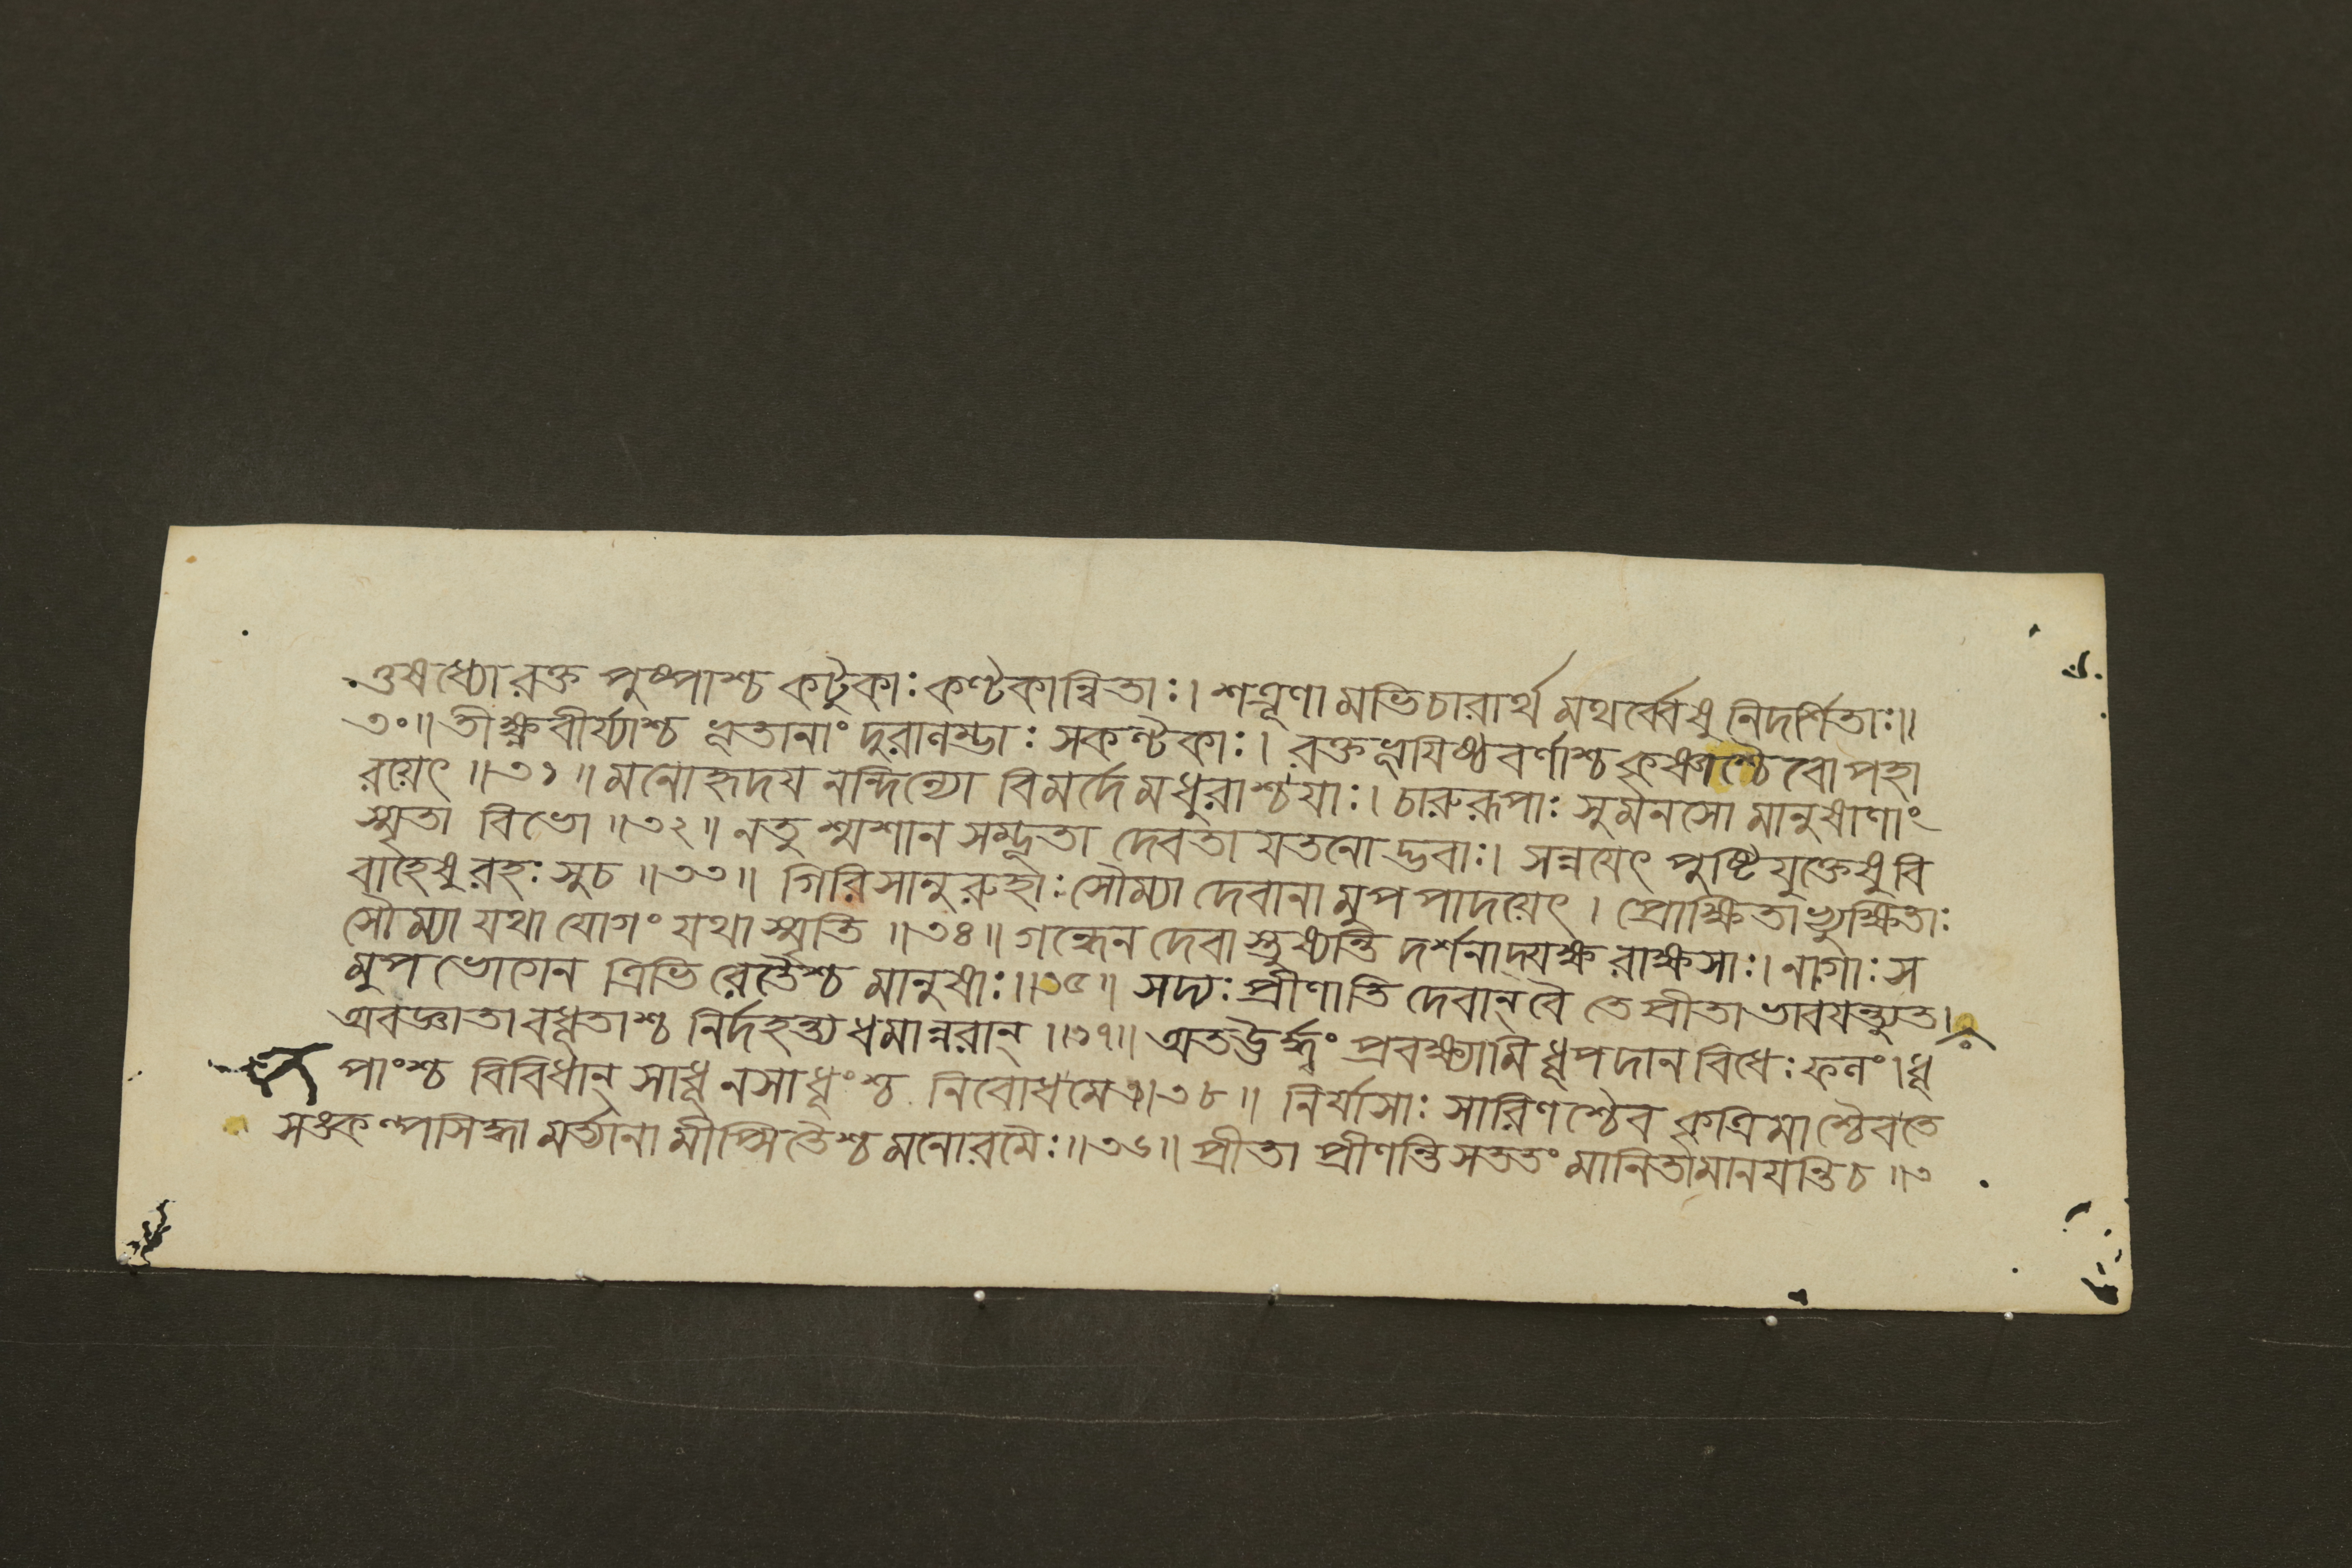 ওষধ্যো রক্ত পুষ্পাশ্চ কটুকাঃ কণ্টকান্বিতাঃ। শত্রূণামভিচারার্থমথর্ব্বেষু নিদর্শিতাঃ॥
৩০॥ তীক্ষ্ণবীর্য্যাশ্চ ভূতানাং দুরালম্ভাঃ সকণ্টকাঃ। রক্তভূয়িষ্ঠবর্ণাশ্চ কৃষ্ণাশ্চৈবোপহা
রয়েৎ ॥৩১॥ মনোহৃদয়নন্দিন্যো বিমর্দে মধুরাশ্চয়াঃ। চারুরূপাঃ সুমনসো মানুষাণাং
স্মৃতা বিভো ॥৩২॥ নতু শ্মশান সম্ভূতা দেবতা যতনোদ্ভবাঃ। সন্নয়েৎ পুষ্টিযুক্তেষু বি
বাহেষু রহঃ সুচ ॥৩৩॥ গিরিসানু রুহাঃ সৌম্যা দেবানামুপপাদয়েৎ। প্রোক্ষিতাভ্যুক্ষিতাঃ
সৌম্যা যথাযোগং যথাস্মৃতি ॥৩৪॥ গন্ধেন দেবাস্তুষ্যন্তি দর্শনাদ্যক্ষরাক্ষসাঃ। নাগাঃ স
মুপভোগেন ত্রিভিরেতৈশ্চ মানুষাঃ॥৩৫॥ সদ্যঃ প্রীণাতি দেবান্ বৈ তে প্রীতা ভাবয়ন্ত্যুত।
অবজ্ঞাতাবধূতাশ্চ নির্দহন্ত্যধমান্নরান্ ॥৩৭॥ অতঊর্দ্ধ্বং প্রবক্ষ্যামি ধূপদান বিধেঃ ফলং। ধূ
পাংশ্চ বিবিধান্ সাধূনসাধূংশ্চ নিবোধমে॥৩৮॥ নির্যাসাঃ সারিণশ্চৈব কৃত্রিমাশ্চৈবতে
সঙ্কল্পসিদ্ধা মর্ত্যানামীপ্সিতৈশ্চ মনোরমৈঃ॥৩৬॥ প্রীতা প্রীণন্তি সততং মানিতামানয়ন্তিচ॥৩